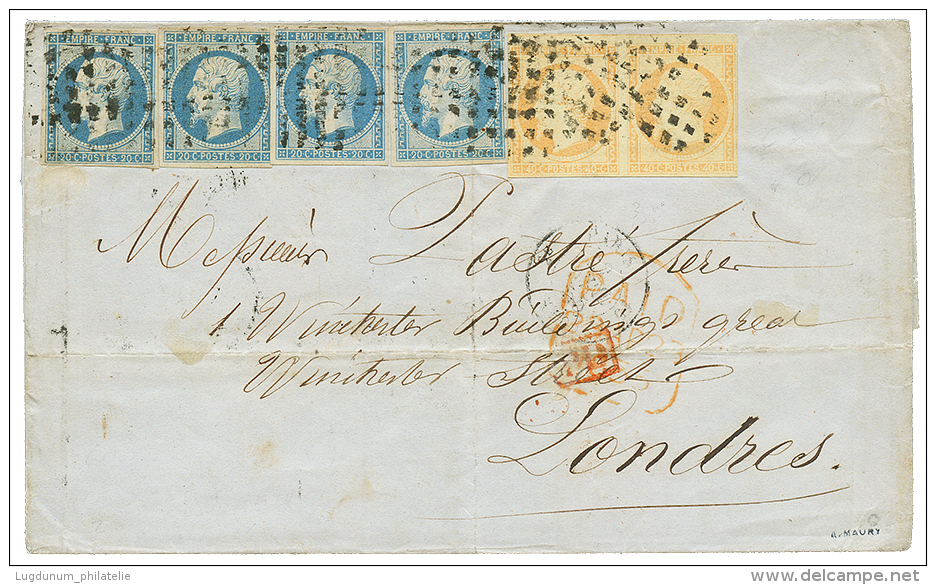 EMPIRE FRANC EMPIRE FRANC EMPIRE FRANC EMPIRE FRANC
20 C POSTES 20 C 20 C POSTES 20 C 20 C POSTES 20 C 20 C POSTES 20 C 40 C POSTES 40 C 40 C POSTES 40 C
Messieurs Pastré frères
PAID
1 Winchester Buildings great
Winchester Street
Londres.
A. MAURY
Lugdunum_philatelie
delcampe.net